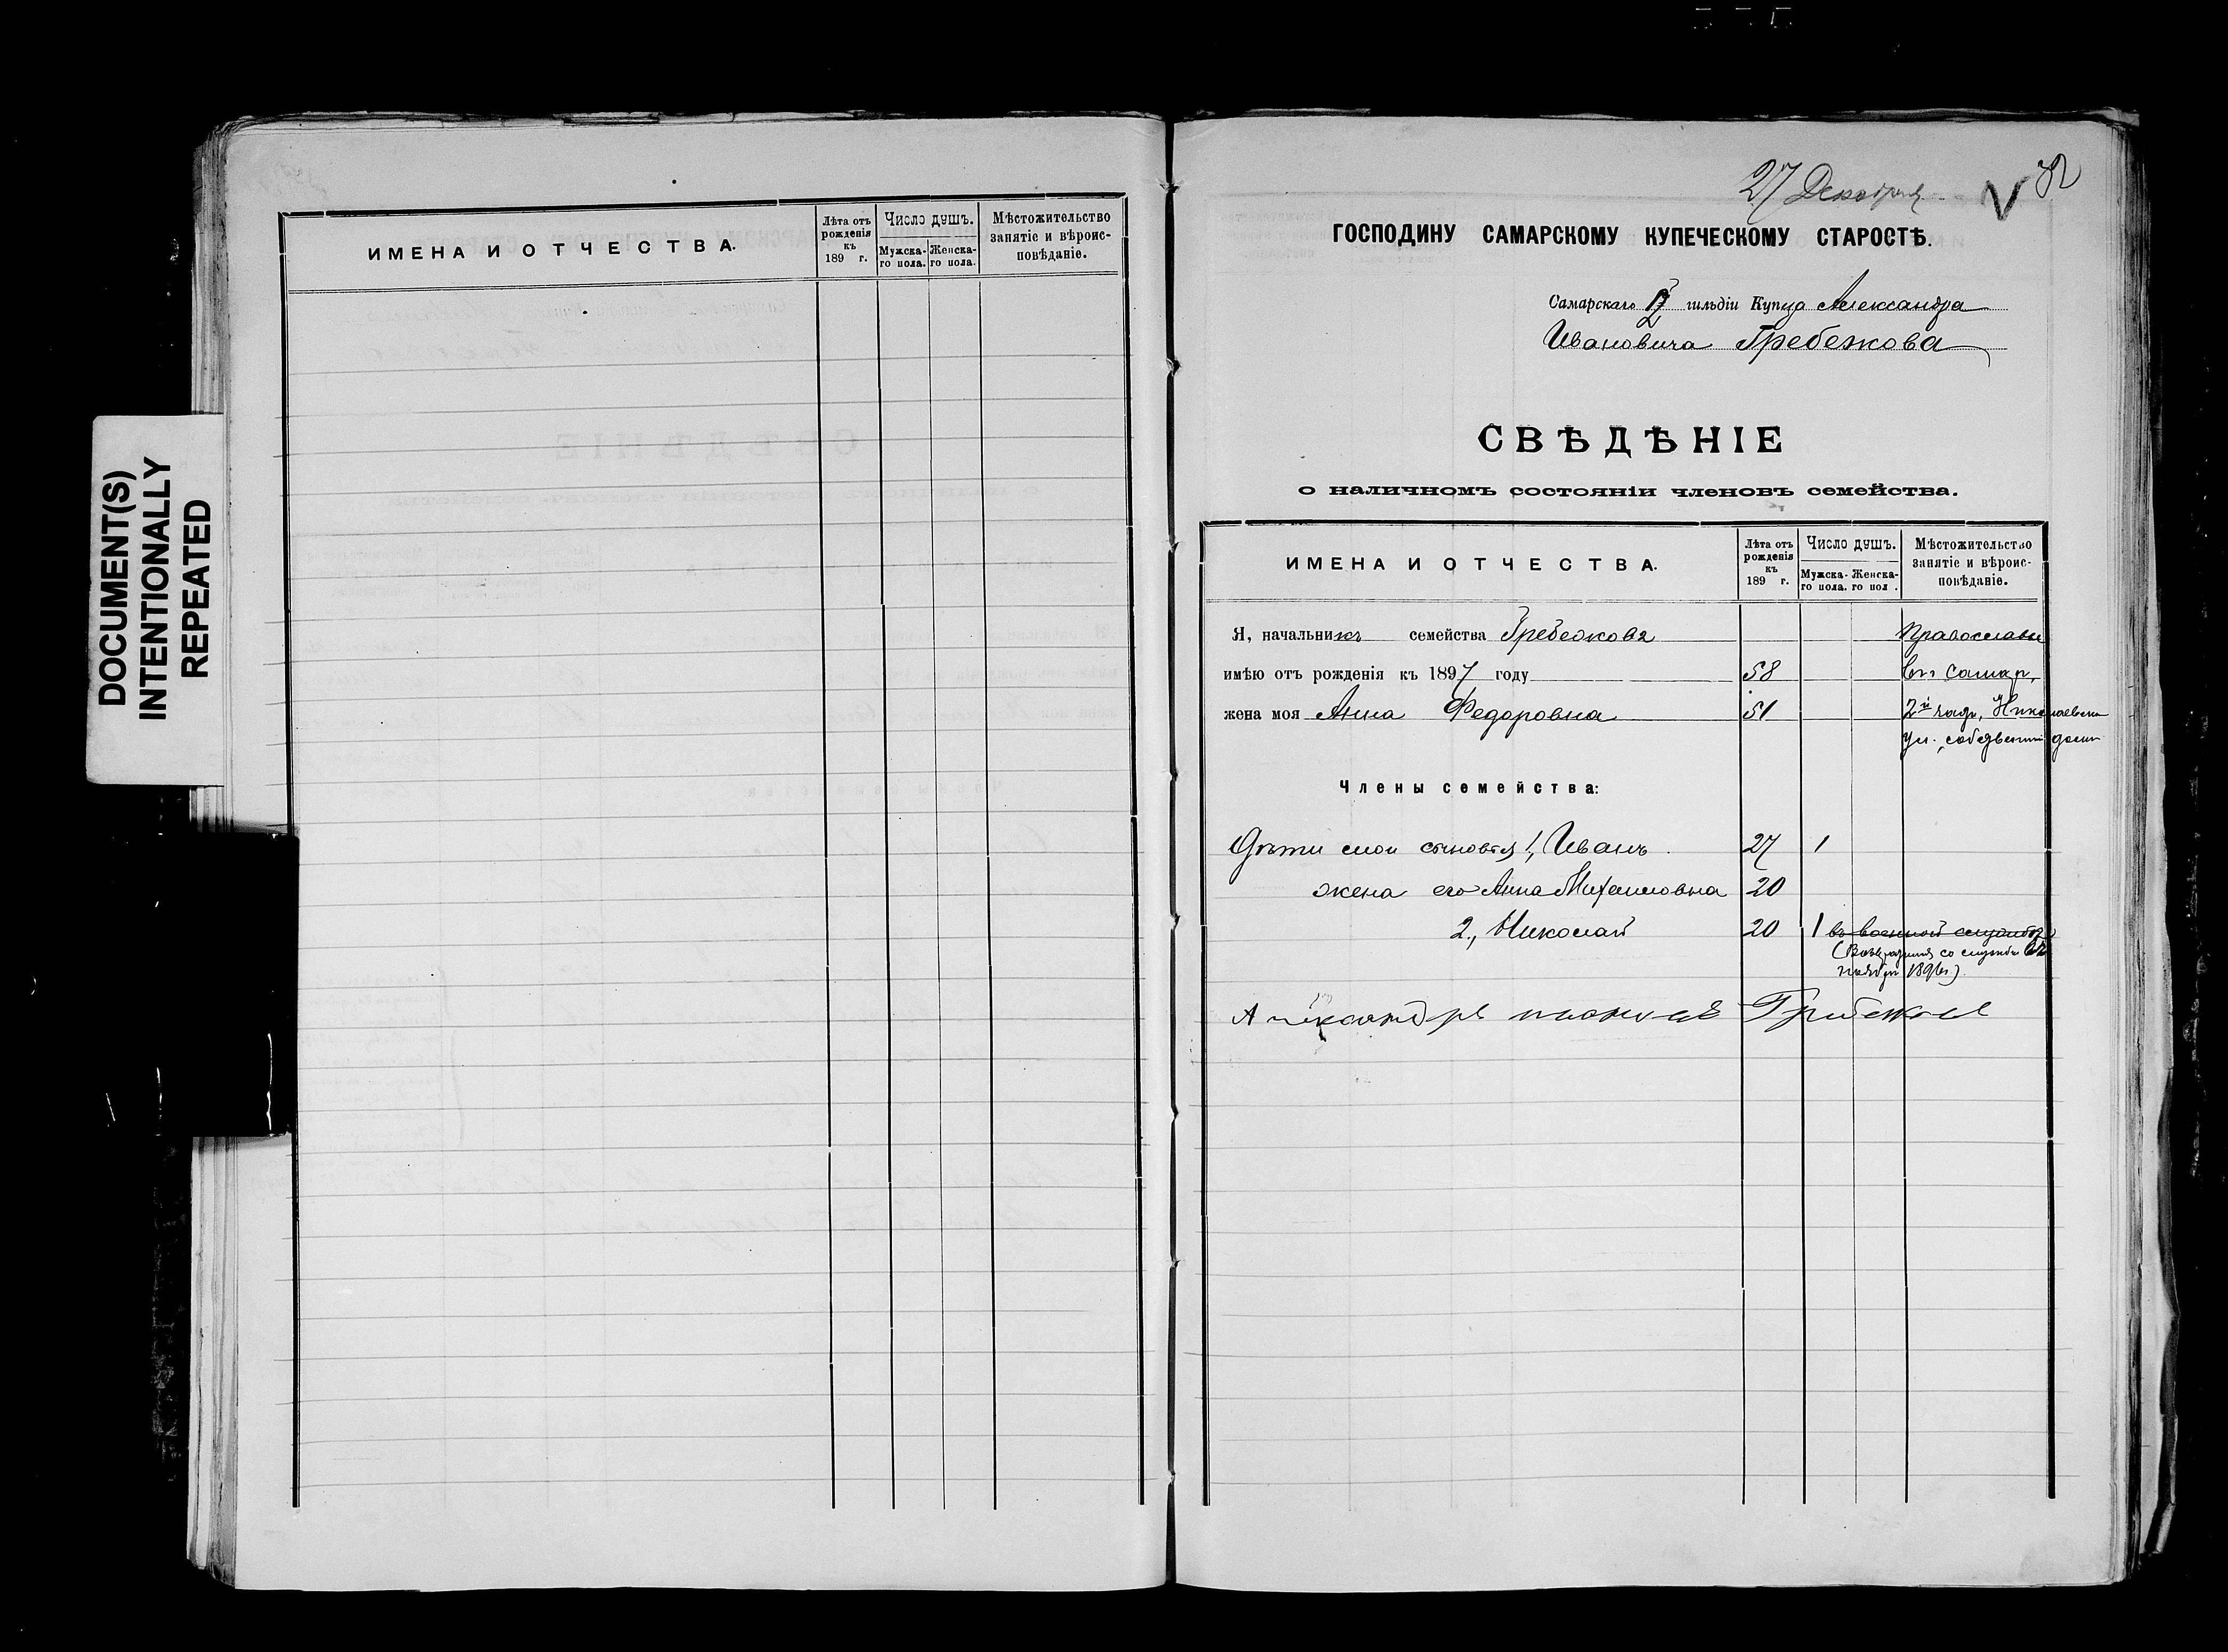 DOCUMENT(S)
INTENTIONALLY
REPEATED
ИМЕНА И ОТЧЕСТВА.
Лѣта отъ рожденія къ 189 г.
Число душъ.
Мужска-го пола.
Женска-го пола.
Мѣстожительство занятіе и вѣроис-повѣданіе.
27 Декабря
ГОСПОДИНУ САМАРСКОМУ КУПЕЧЕСКОМУ СТАРОСТѢ.
Самарскаго 2 гильдіи Купца Александра
Ивановича Гребежкова
СВѢДѢНІЕ
о наличномъ состояніи членовъ семейства.
ИМЕНА И ОТЧЕСТВА.
Лѣта отъ рожденія къ 189 г.
Число душъ.
Мужска-го пола.
Женска-го пол .
Мѣстожительство занятіе и вѣроис-повѣданіе.
Я, начальникъ семейства Гребежковъ
имѣю отъ рожденія къ 1897 году 58 въ Самар,
жена моя Анна Федоровна 51 2й части, Николаевск
ул.,
Члены семейства:
Дѣти мои сыновья 1, Иванъ 27 1
жена его Анна Михаиловна 20
2., Николай 20 1 въ военной службѣ
(Возвратился со службы
ноября 1896 г)